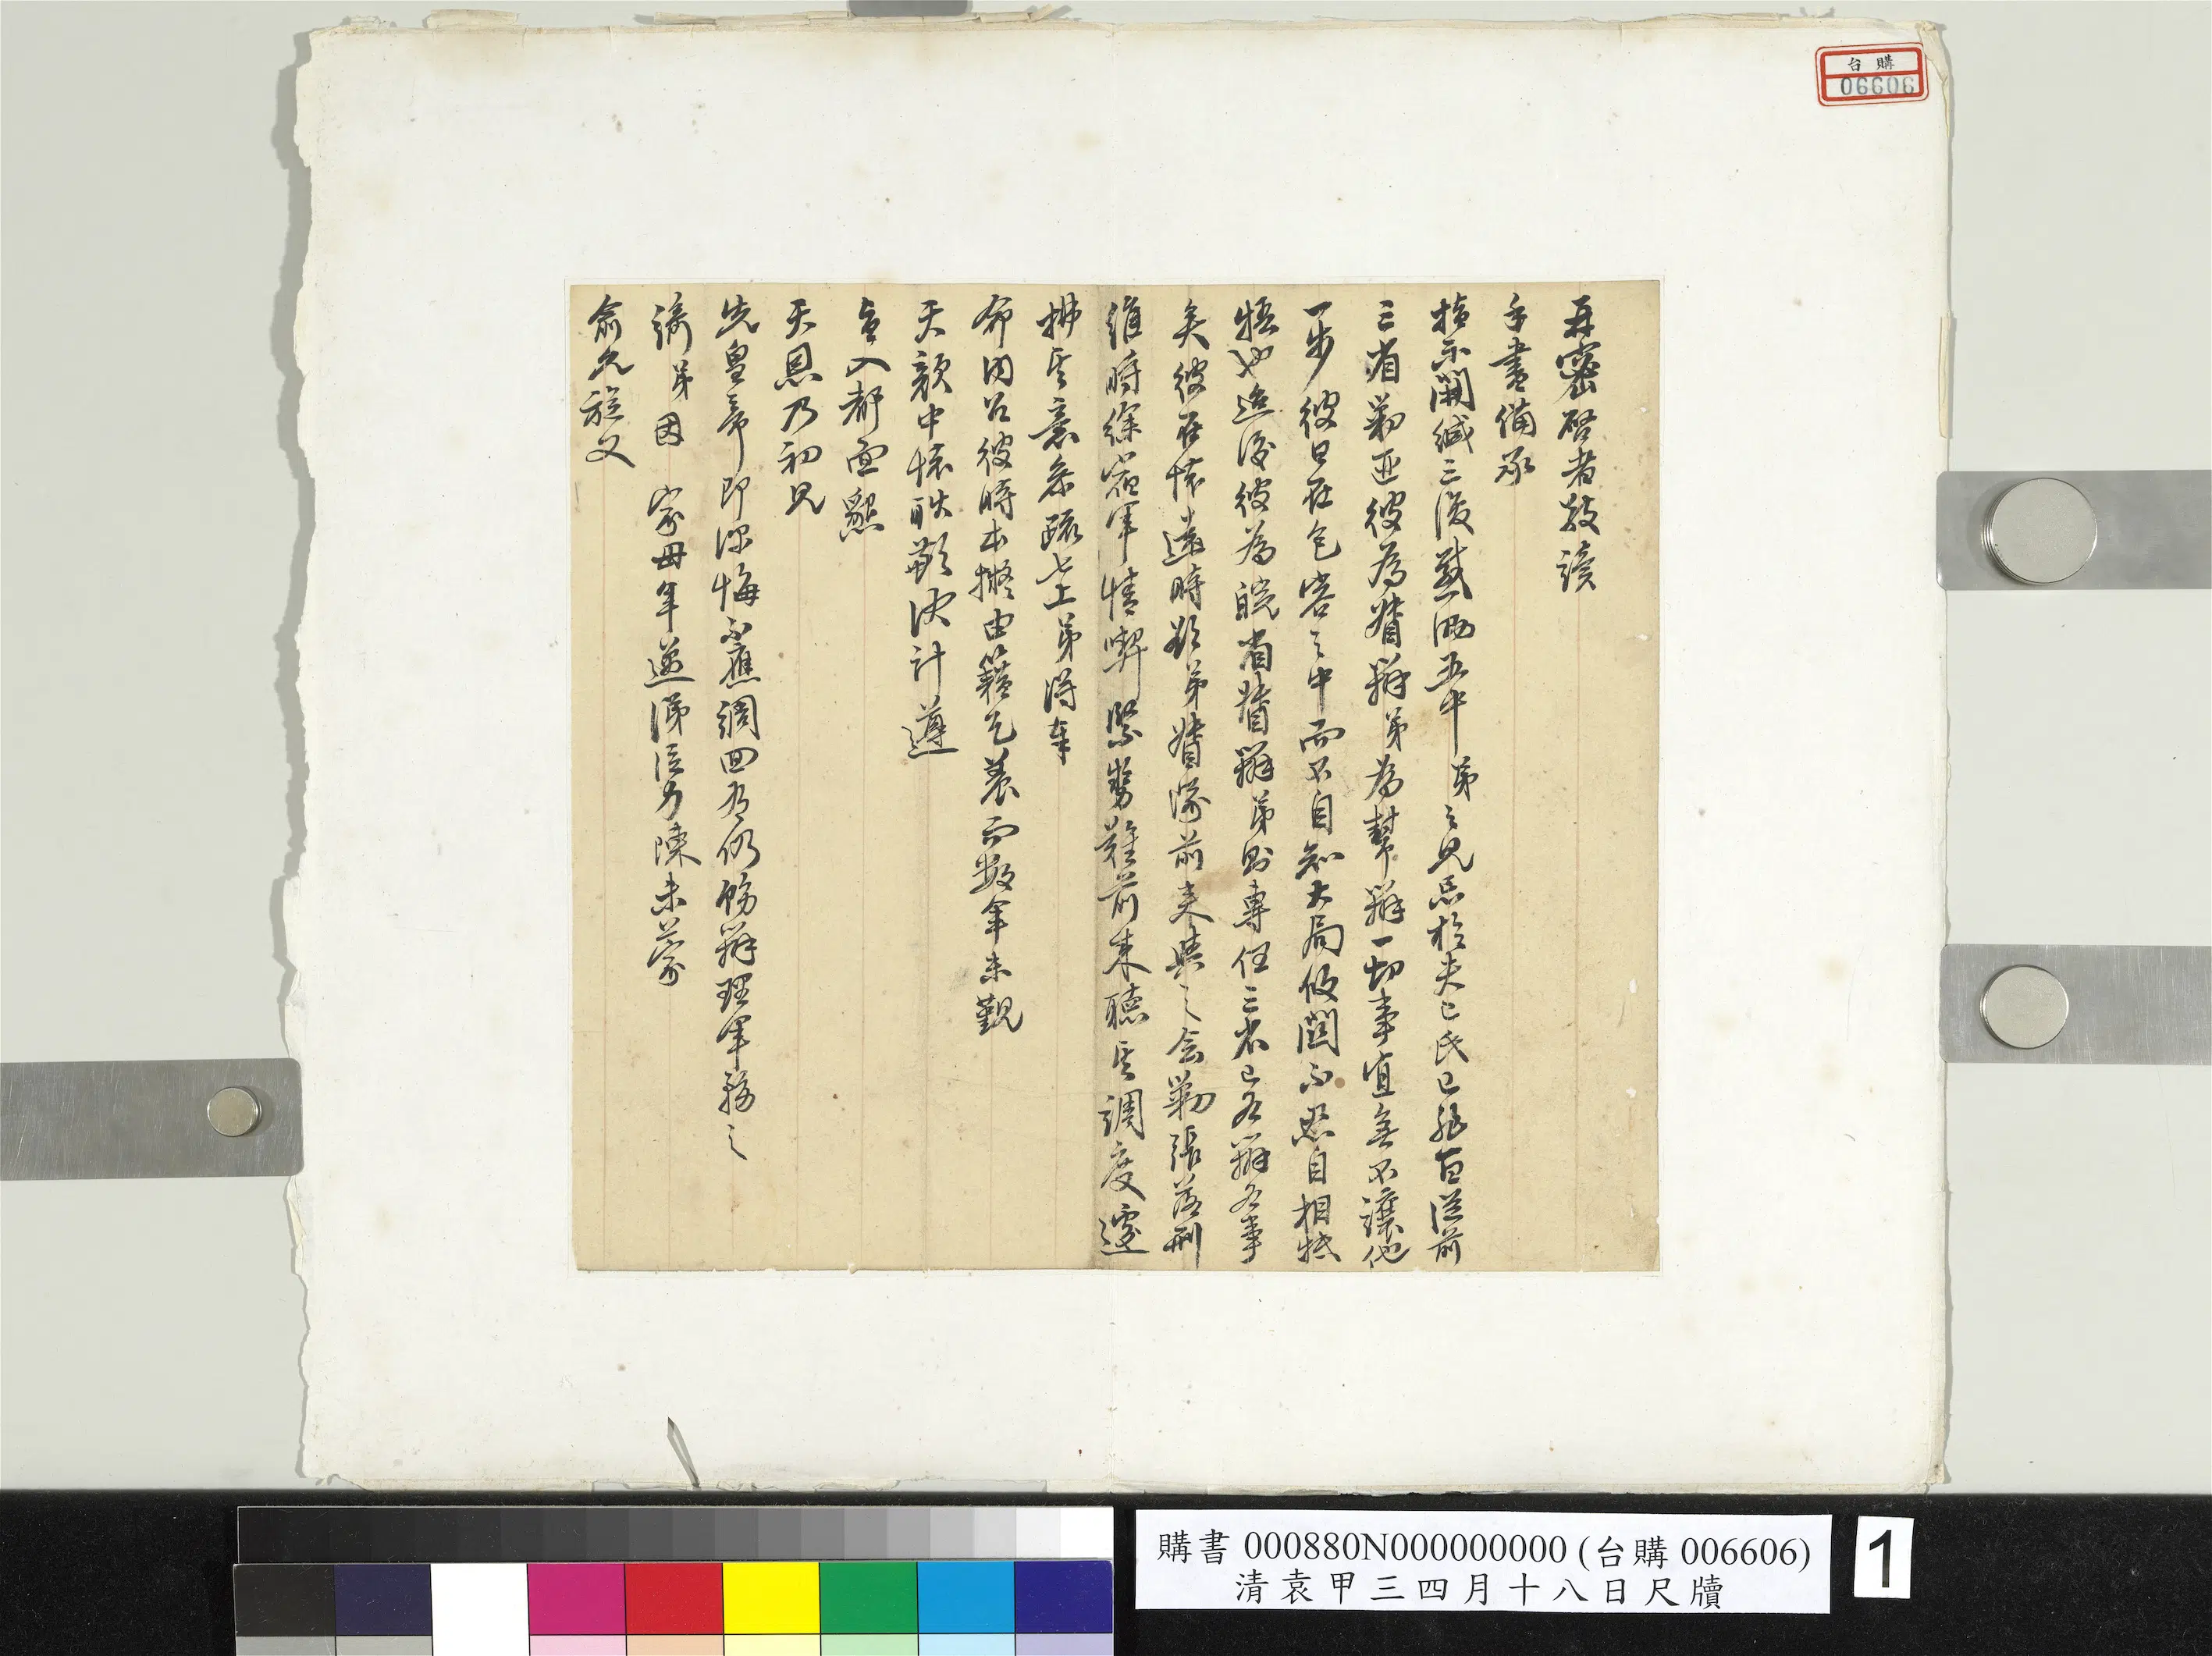 台購
06606
再密啓者敬讀
手書備承
指示開緘三復感洒五中弟之見忌於夫己氏已非一日從前
三省勦匪彼為督辦弟為幫辦一切事宜無不讓他
一步彼日在包容之中而不自知大局攸關不照自相牴
牾也迨後彼為皖省督辦弟則專任三省已各辦各事
矣彼在懷遠時欲弟督隊前來與之會勦張落刑
維時徐宿軍情喫緊勢難前來聽其調度遂
拂其意參疏七上弟得奉
命內召彼時本擬由籍乞養而數年未覲
天顏中懷耿歉決計遵
旨入都面懇
天恩乃初見
先皇帝即深悔不應調回有仍飭辦理軍務之
諭弟因 家母年邁涕泣力陳未蒙
俞允旋又
購書 000880N000000000 (台購 006606)
清袁甲三四月十八日尺牘
1